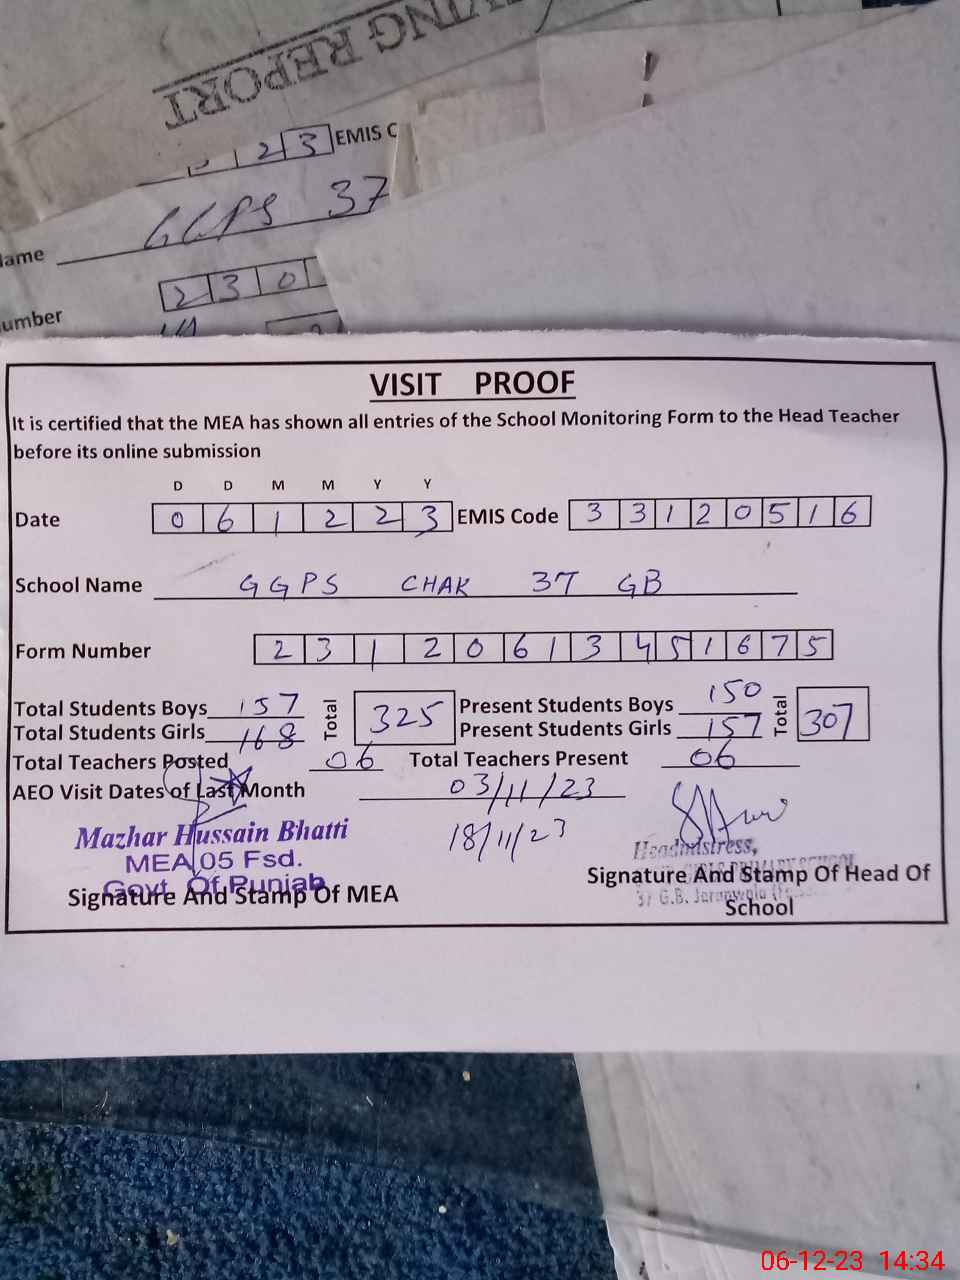 VING REPORT
2 3 EMIS C
GGPS 37
ame
2 3 0
umber
VISIT PROOF
It is certified that the MEA has shown all entries of the School Monitoring Form to the Head Teacher
before its online submission
D D M M Y Y
Date 0 6 1 2 2 3 EMIS Code 3 3 1 2 0 5 1 6
School Name GGPS CHAK 37 GB
Form Number 2 3 1 2 0 6 1 3 4 5 1 6 7 5
Total Students Boys 157 Total 325 Present Students Boys 150 Total 307
Total Students Girls 168 Present Students Girls 157
Total Teachers Posted 06 Total Teachers Present 06
AEO Visit Dates of Last Month 03/11/23
18/11/23
Mazhar Hussain Bhatti
MEA 05 Fsd.
Govt. Of Punjab
Signature And Stamp Of MEA
Headmistress,
GIRLS PRIMARY SCHOOL
Signature And Stamp Of Head Of
37 G.B. Jaranwala
School
06-12-23 14:34